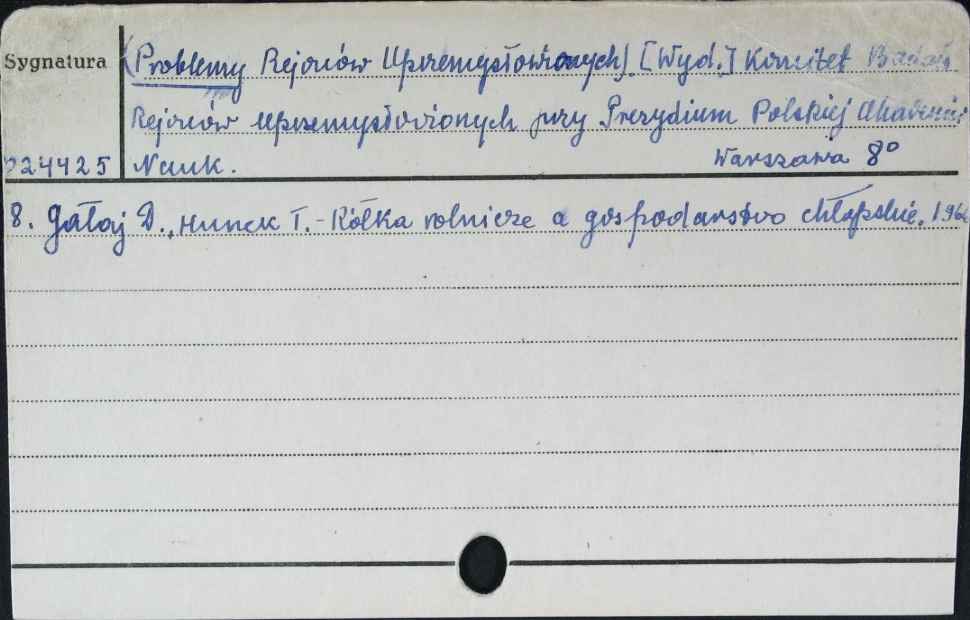 Sygnatura
(Problemy Rejonów Uprzemysłowionych) [Wyd.] Komitet Badań
Rejonów uprzemysłowionych przy Prezydium Polskiej Akademii
224425 Nauk. Warszawa 8°
8. Gałaj D., Hunek T. - Kółka rolnicze a gospodarstwo chłopskie.